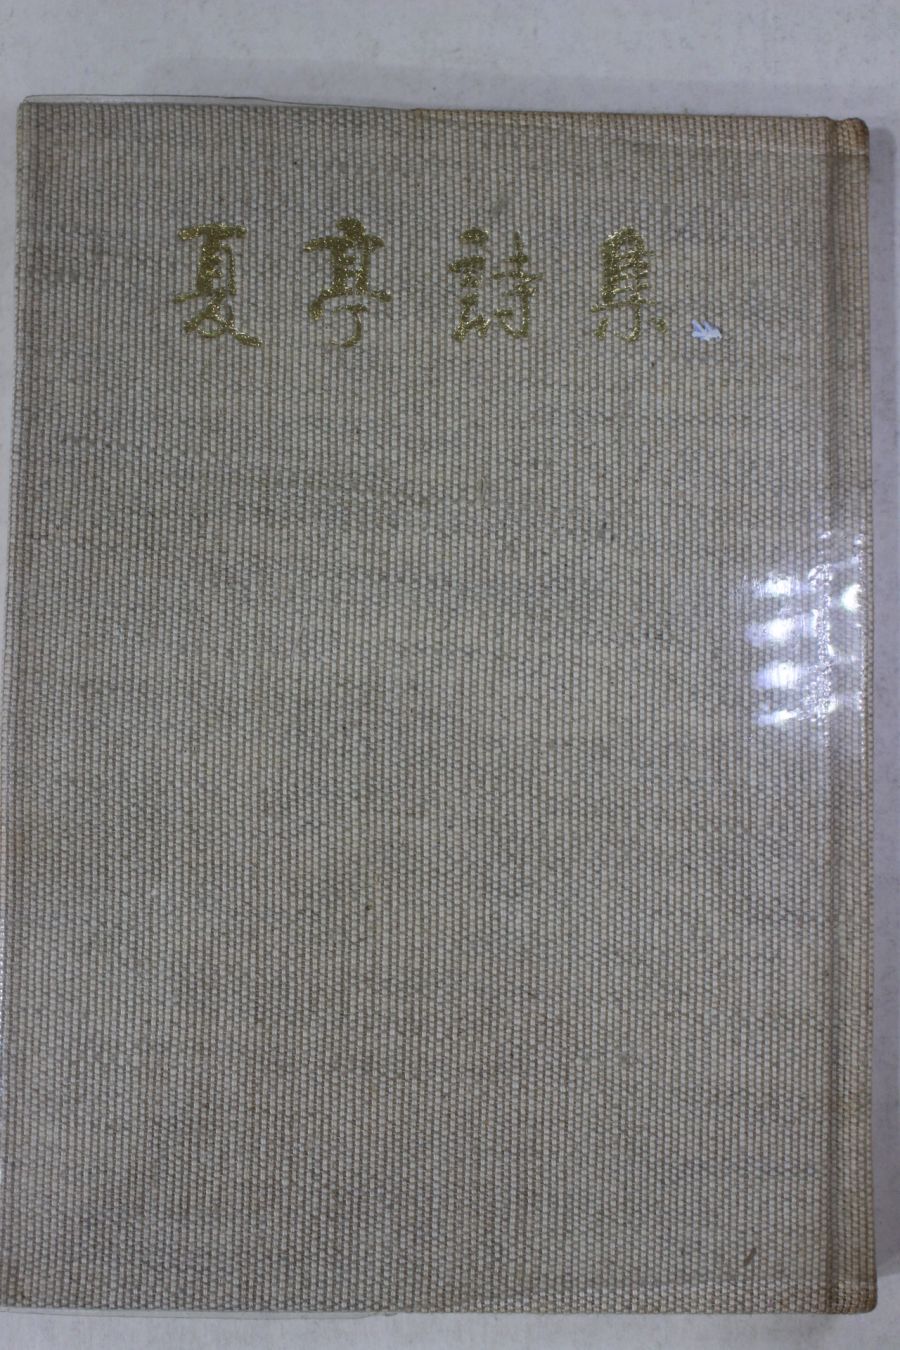 夏亭詩集